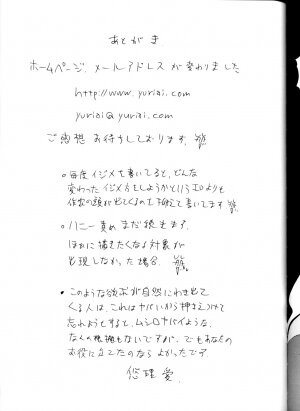 あとがき
ホームページ、メールアドレスが変わりました
http://www.yuriai.com
yuriai@yuriai.com
ご感想お待ちしております。
●毎度イジメを書いてると、どんな
変わったイジメ方をしようかというエロよりも
作家の頭が出てくるのを抑えて書いてます
●ハニー責めまだ続きます。
ほかに描きたくなる対象が
出現しなかった場合。
●このような欲求が自然にわき出て
くる人は、これはヤバいから押さえつけて
忘れようとすると、ムシロヤバイような、
なんの根拠もないですが、でもあなたの
お役に立てたのならよかったです。
悠理愛